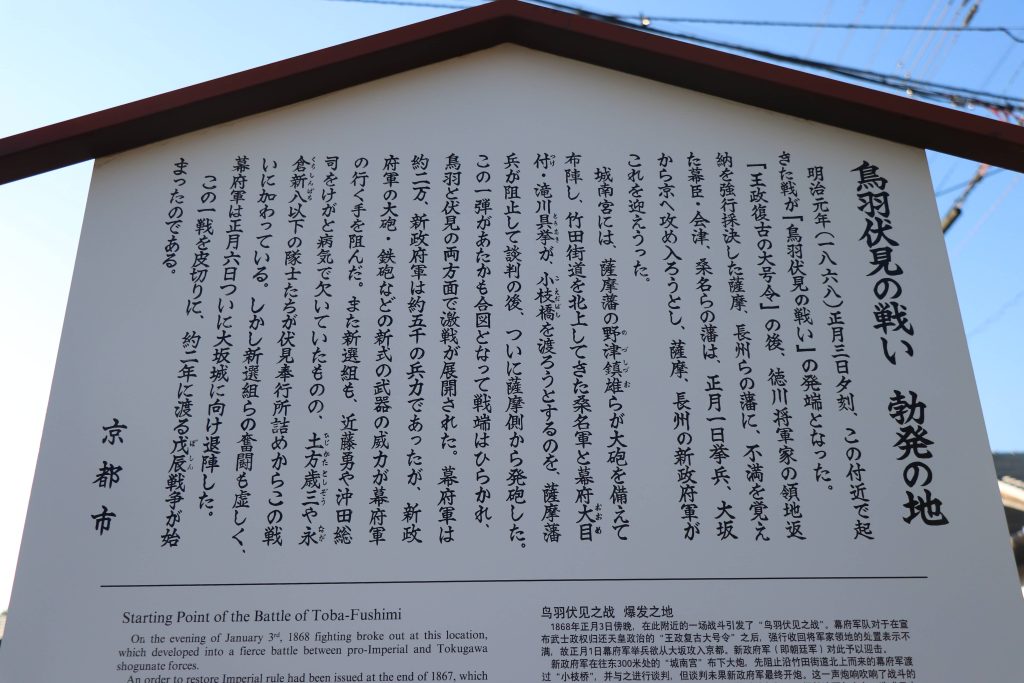 鳥羽伏見の戦い 勃発の地
明治元年（一八六八）正月三日夕刻、この付近で起
きた戦が「鳥羽伏見の戦い」の発端となった。
「王政復古の大号令」の後、徳川将軍家の領地返
納を強行採決した薩摩、長州らの藩に、不満を覚え
た幕臣・会津、桑名らの藩は、正月一日挙兵、大坂
から京へ攻め入ろうとし、薩摩、長州の新政府軍が
これを迎えうった。
城南宮には、薩摩藩の野津鎮雄らが大砲を備えて
布陣し、竹田街道を北上してきた桑名軍と幕府大目
付・滝川具挙が、小枝橋を渡ろうとするのを、薩摩藩
兵が阻止して談判の後、ついに薩摩側から発砲した。
この一弾があたかも合図となって戦端はひらかれ、
鳥羽と伏見の両方面で激戦が展開された。幕府軍は
約二万、新政府軍は約五千の兵力であったが、新政
府軍の大砲・鉄砲などの新式の武器の威力が幕府軍
の行く手を阻んだ。また新選組も、近藤勇や沖田総
司をけがと病気で欠いていたものの、土方歳三や永
倉新八以下の隊士たちが伏見奉行所詰めからこの戦
いに加わっている。しかし新選組らの奮闘も虚しく、
幕府軍は正月六日ついに大坂城に向け退陣した。
この一戦を皮切りに、約二年に渡る戊辰戦争が始
まったのである。
京都市
Starting Point of the Battle of Toba-Fushimi
On the evening of January 3rd, 1868 fighting broke out at this location,
which developed into a fierce battle between pro-Imperial and Tokugawa
shogunate forces.
An order to restore Imperial rule had been issued at the end of 1867, which
鸟羽伏见之战 爆发之地
1868年正月3日傍晚，在此附近的一场战斗引发了“鸟羽伏见之战”。幕府军队对于在宣
布武士政权归还天皇政治的“王政复古大号令”之后，强行收回将军家领地的处置表示不
满，故正月1日幕府军举兵欲从大坂攻入京都。新政府军（即朝廷军）对此予以迎击。
新政府军在往东300米处的“城南宫”布下大炮。先阻止沿竹田街道北上而来的幕府军渡
过“小枝桥”，并与之进行谈判，但谈判未果新政府军最终开炮。这一声炮响吹响了战斗的